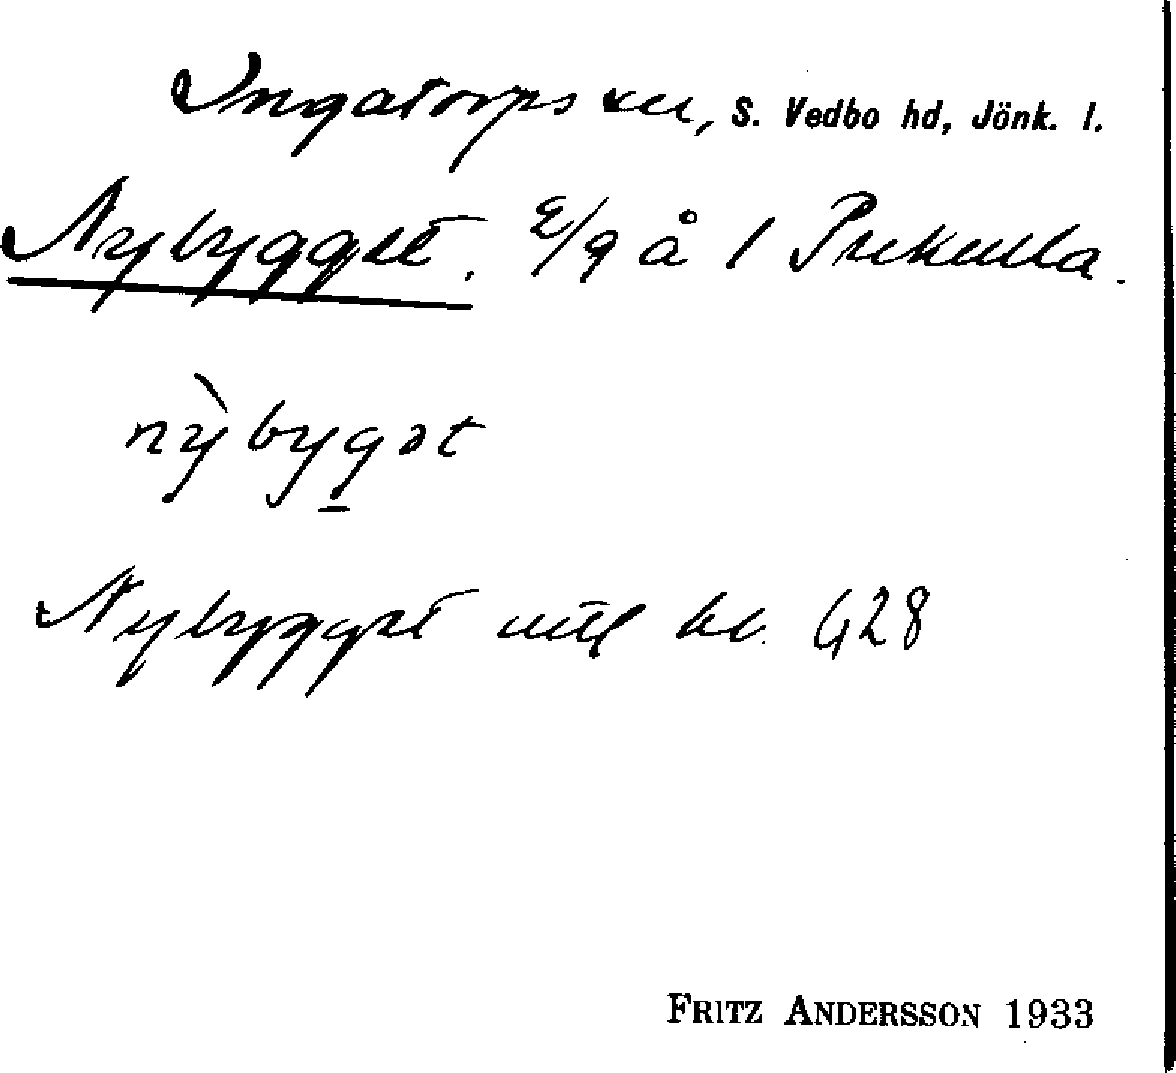 Ingatorps sn, S. Vedbo hd, Jönk. l.
Nybygget. å 1 Prekulla.
nỳbygət
Nybygget utl bl. G28
FRITZ ANDERSSON 1933